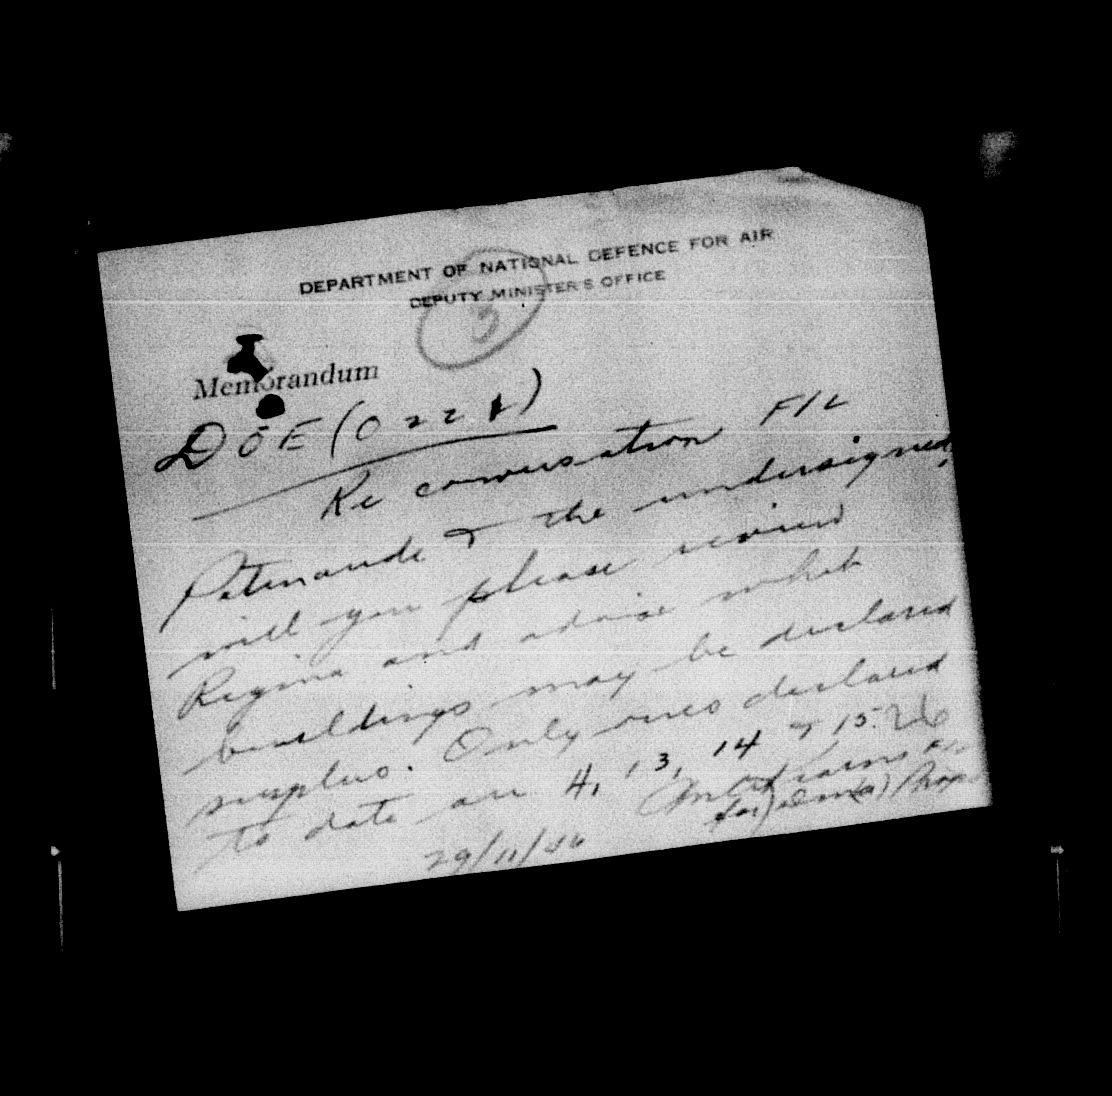 DEPARTMENT OF NATIONAL DEFENCE FOR AIR
DEPUTY MINISTER'S OFFICE
3
Memorandum
DOE (O 22 1)
Re conversation F/L
Patenaude & the undersigned,
will you please review
Regina and advise what
buildings may be declared
surplus. Only ones declared
to date are 4, 13, 14 & 15. 26
for
29/11/46